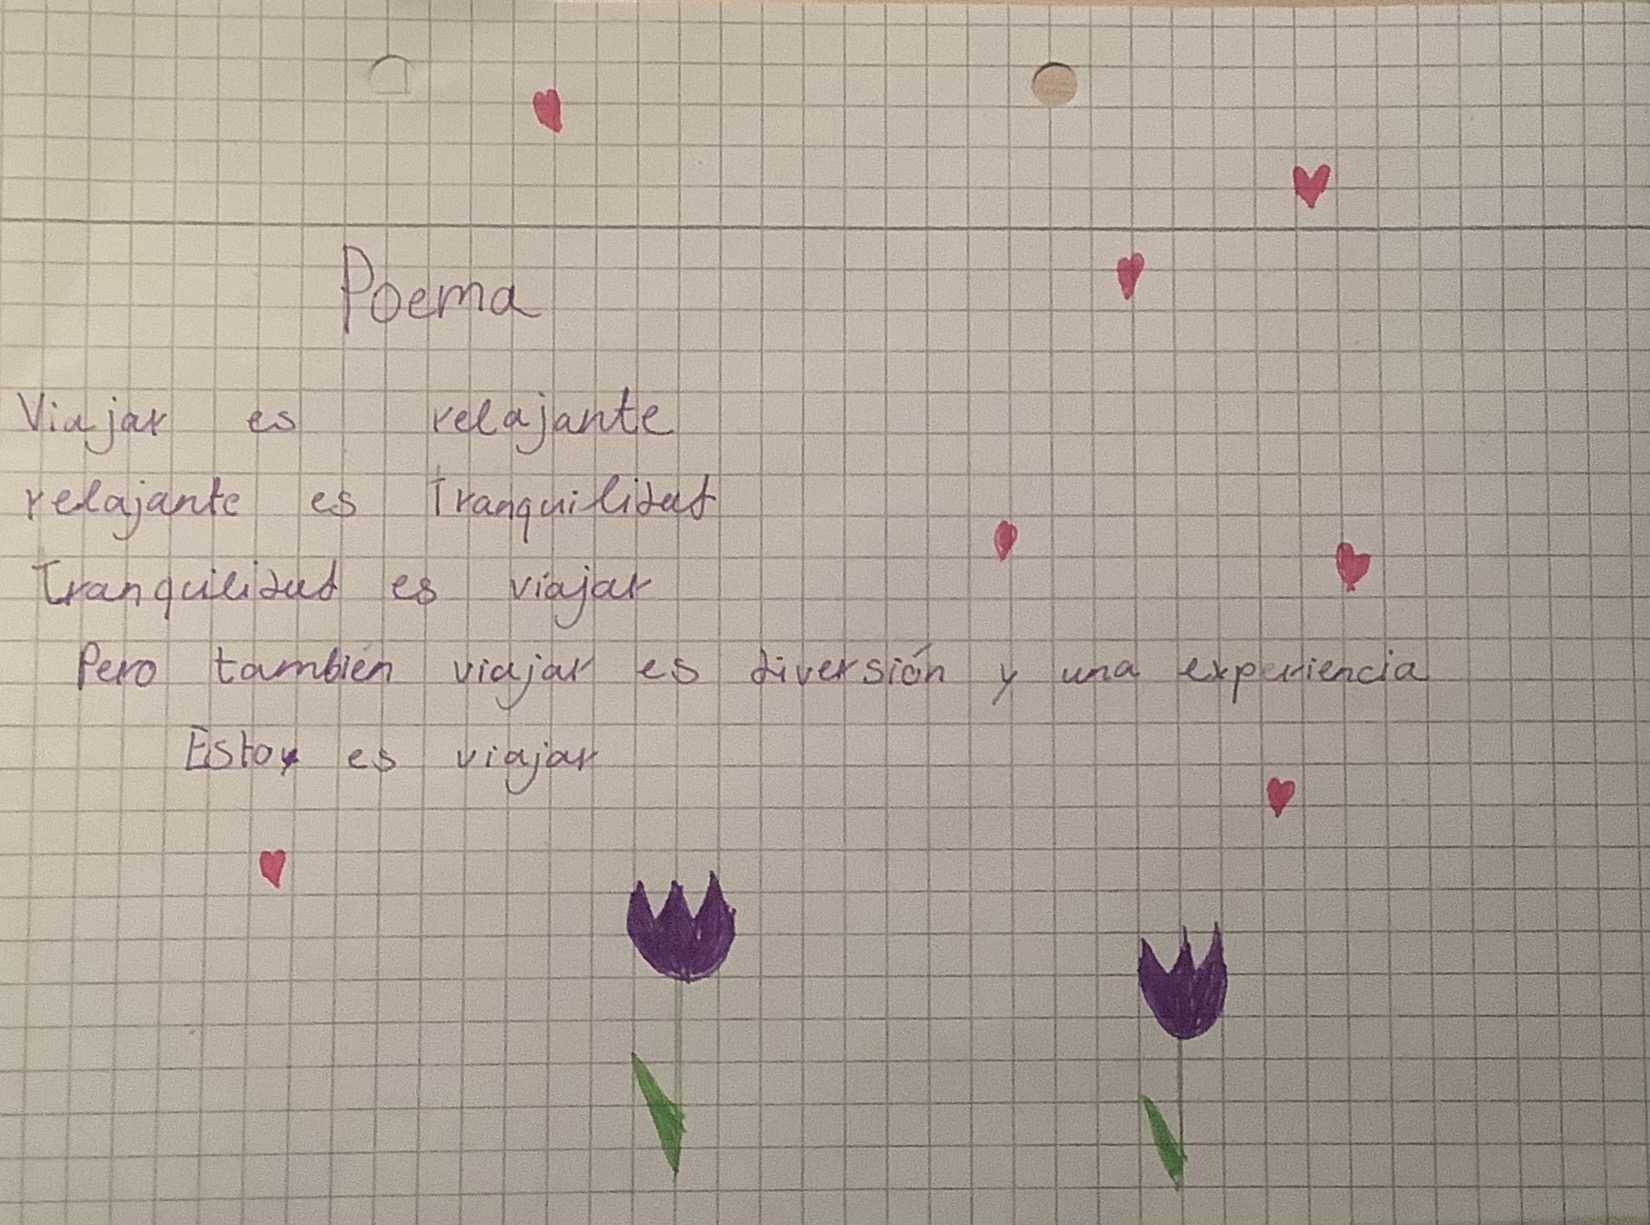 Poema
Viajar es relajante
relajante es Tranquilidad
Tranquilidad es viajar
Pero también viajar es diversión y una experiencia
Estoy es viajar